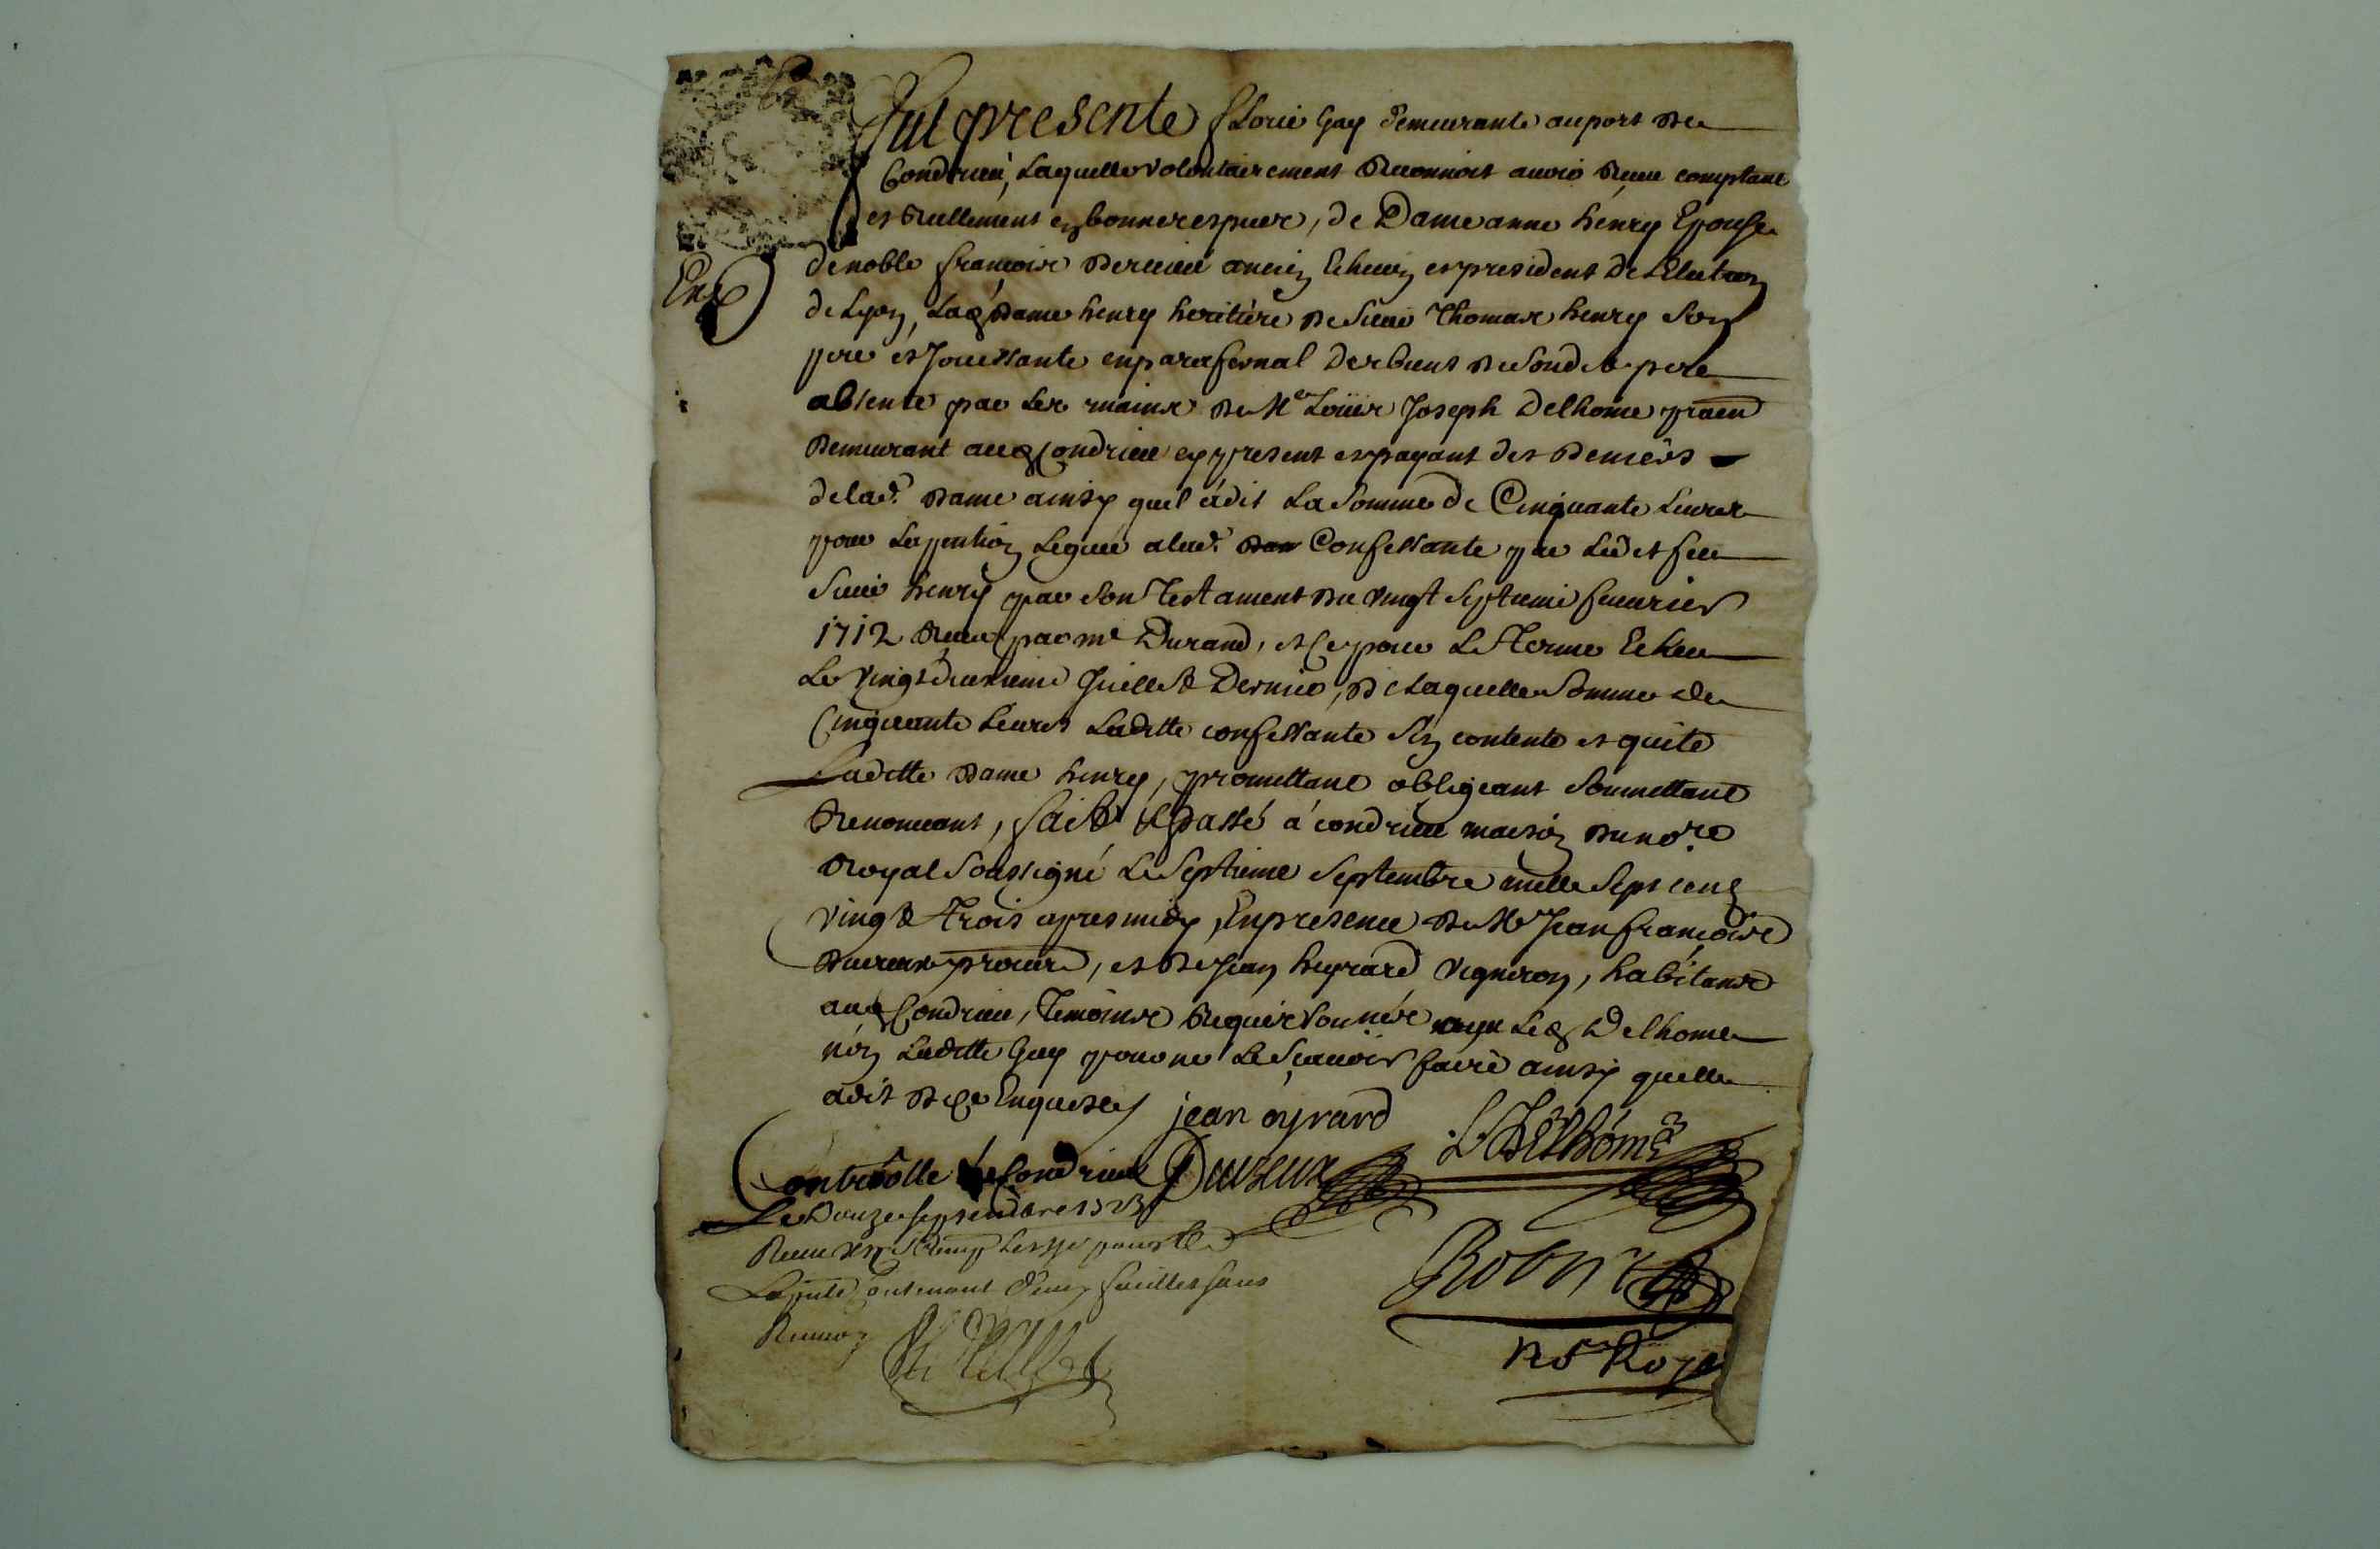 Fut presente fLorie Gay demeurante au port de
Condrieu, Laquelle volontairement Reconnoit auoir Receu comptant
et Reellement en bonnes especes, de Dame anne henry Epouse
de noble francois ancien Echeuin et president de L'Election
de Lyon, Lad dame henry heritiere de Sieur Thomas henry Son
pere et Jouissante en parafernal des biens de Sondit pere
absente par Les mains de Me Loüis Joseph Delhome
Demeurant aud Condrieu cy present et payant des Deniers
de lad. Dame ainsy quil a dit La Somme de Cinquante Liures
pour La pention Leguée a lad. Confessante par Ledit feu
Sieur henry par Son Testament du vingt Septieme feurier
1712 Receu par me Durand, et Ce pour Le Terme Echeu
Le vingt deuxieme Juillet Dernier, de Laquelle Somme de
Cinquante Liures Laditte confessante S'en contente et quitte
Laditte Dame henry, promettant obligeant Soumettant
Renonceant, fait et Passé á condrieu maison du nore
Royal Soussigné Le Septieme Septembre mille Sept cent
vingt Trois apres midy, En presence de Me Jean francois
Duvreux procur, et de Jean heyrard vigneron, habitans
aud Condrieu, Temoins Requis Soussignés auec Led Delhome
non Laditte Gay pour ne Le Scauoir faire ainsy quelle
a dit de ce Enquise
jean oyrard
L J Delhome
Contrôlle a Condrieu
Le Douze septembre 1723
Receu
contenant feuillet sans
Renuoy
Robin
no Roy